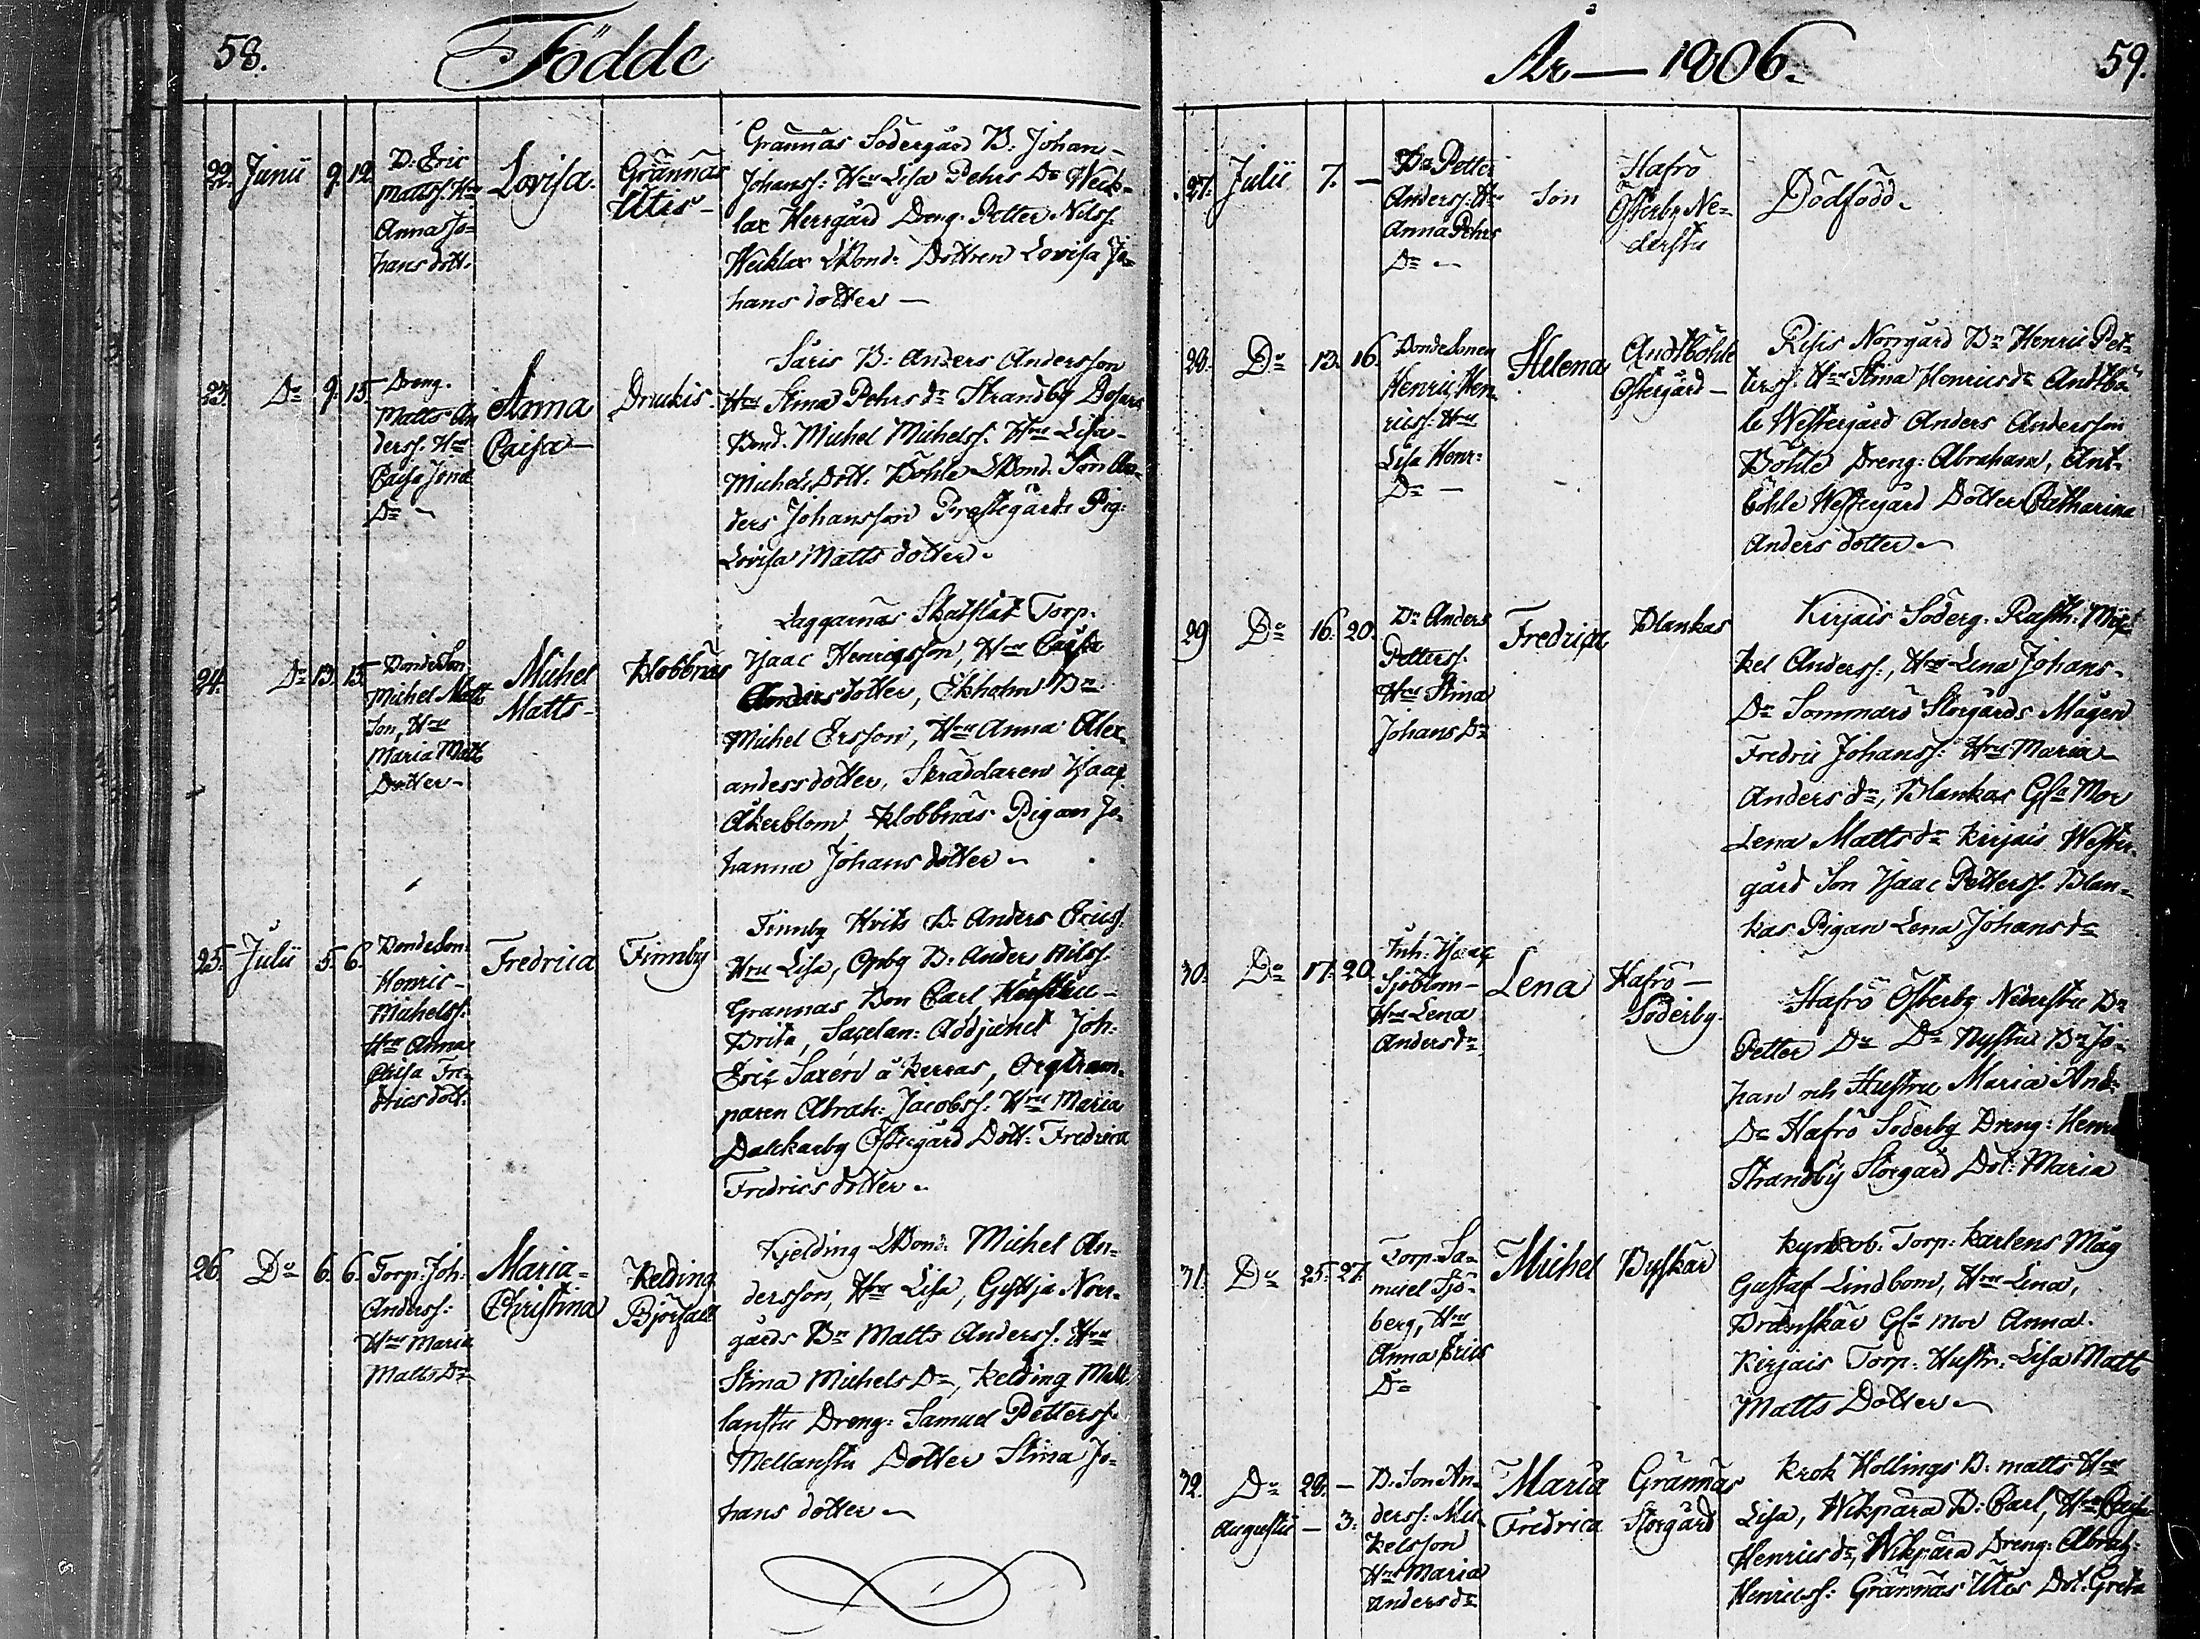 58.
Födde
22. Junii 9. 12.
D: Eric
Mattss. Hru
Anna Jo=
hans dott:
Lovisa.
Grännäs
Utis –
Grännäs Södergård B: Johan –
Johanss: Hru Lisa Pehrs Dr Weck=
lax Herrgård Dreng: Petter Nilss:
Wecklax Bond: Dottren Lovisa Jo=
hans dotter —
23. Do 9. 15.
Dreng.
Matts An
derss. Hru
Caisa Jona
Dr –
Anna
Caisa –
Druckis.
Säris B: Anders Andersson
Hru Stina Pehrs dr Strandby
Bond. Michel Michelss. Hru Lisa –
Michels Dott. Böhle Bond. Son An=
ders Johansson Prestegårds Pig:
Lovisa Matts dotter.
24. Do 13. 15.
Bonde Son
Michel Matts
Son, Hru
Maria Matts
Dotter –
Michel
Matts –
Klobbnäs
Laggarnäs Skatslät Torp.
Isaac Henricsson, Hru Caisa
Anders dotter, Ekholm Bn
Michel Ersson, Hru Anna Alex
anders dotter, Skräddaren Isaac
Åkerblom, Klobbnäs Pigan Jo=
hanna Johans dotter –
25. Julii 5. 6.
Bonde Son:
Henric –
Michelss.
Hru Anna
Caisa Fre=
drics dott:
Fredrica
Finnby
Finnby Hvits B: Anders Ericss.
Hru Lisa, Opby B: Anders Nilss.
Grannas Bon Carl Hustru –
Brita, Sacelan: Addjunct Joh:
Eric Saxén å Kerras, Orgtram=
paren Abrah: Jacobss: Hru Maria
Dalckarby Östergård Dott: Fredrica
Fredrics dotter.
26. Do 6. 6.
Torp: Joh:
Anderss:
Hru Maria
Matts Dr
Maria=
Christina
Kelding
Björsall
Kjelding Bond: Michel An=
dersson, Hru Lisa, Gyttja Norr=
gårds Bn Matts Anderss. Hru
Stina Michels Dr, Kelding Mel
lanstu Dreng: Samuel Petterss.
Mellanstu Dotter Stina Jo=
hans dotter –
År — 1806.
59.
27. Julii 7. —
Bn Petter
Anderss: Hru
Anna Pehrs
Dr –
Son
Hafrö
Österby Ne=
derstu
Dödfödd.
28. Do 13. 16.
Bondesonen
Henric Hen=
ricss. Hru
Lisa Henr:
Dr –
Helena
Andtböhle
Östergård –
Risis Norrgård Bn Henric Pet=
terss: Hru Stina Henrics dr Andtbö
le Westergård Anders Andersson
Böhle Dreng: Abraham, Ant=
böhle Westergård Dotter Catharina
Anders dotter –
29. Do 16. 20.
Dn Anders
Petterss.
Hru Stina
Johans Dr
Fredrica
Blankas
Kirjais Söderg: Mic
kel Anderss:, Hru Lena Johans –
Dr Sommarö Storgårds Mågen
Fredric Johanss: Hru Maria –
Anders dr, Blankas Gla Mor
Lena Matts dr Kirjais Wester=
gård Son Isaac Petterss. Blan=
kas Pigan Lena Johans dr
30. Do 17. 20.
Inh: Isaac
Sjöblom –
Hru Lena
Anders dr
Lena
Hafrö –
Söderby.
Hafrö Österby Nederstu Bn
Petter Dn Do Nystu Bn Jo=
han och Hustru Maria And:
Dr Hafrö Söderby Dreng: Henric
Strandby Storgård Dot: Maria
31. Do 25. 27.
Torp: Sa=
muel Sjö=
berg, Hru
Anna Erics
Dr
Michel
Byskär
Kyrkob: Torp: Karlens Måg
Gustaf Lindbom, Hru Lena,
Brånskär Gla mor Anna.
Kirjais Torp: Hustr: Lisa Matts
Matts Dotter –
32. Do 28. —
Augusti – 3.
B: Son An=
derss: Mic
kelsson
Hru Maria
Anders dr
Maria
Fredrica
Grännäs
Storgård
Krok Hollings B: Matts Hru
Lisa, Wikpära B: Carl, Hru Caisa
Henrics dr, Wikpära Dreng: Abrah:
Henricss: Grännäs Utis Dot: Greta